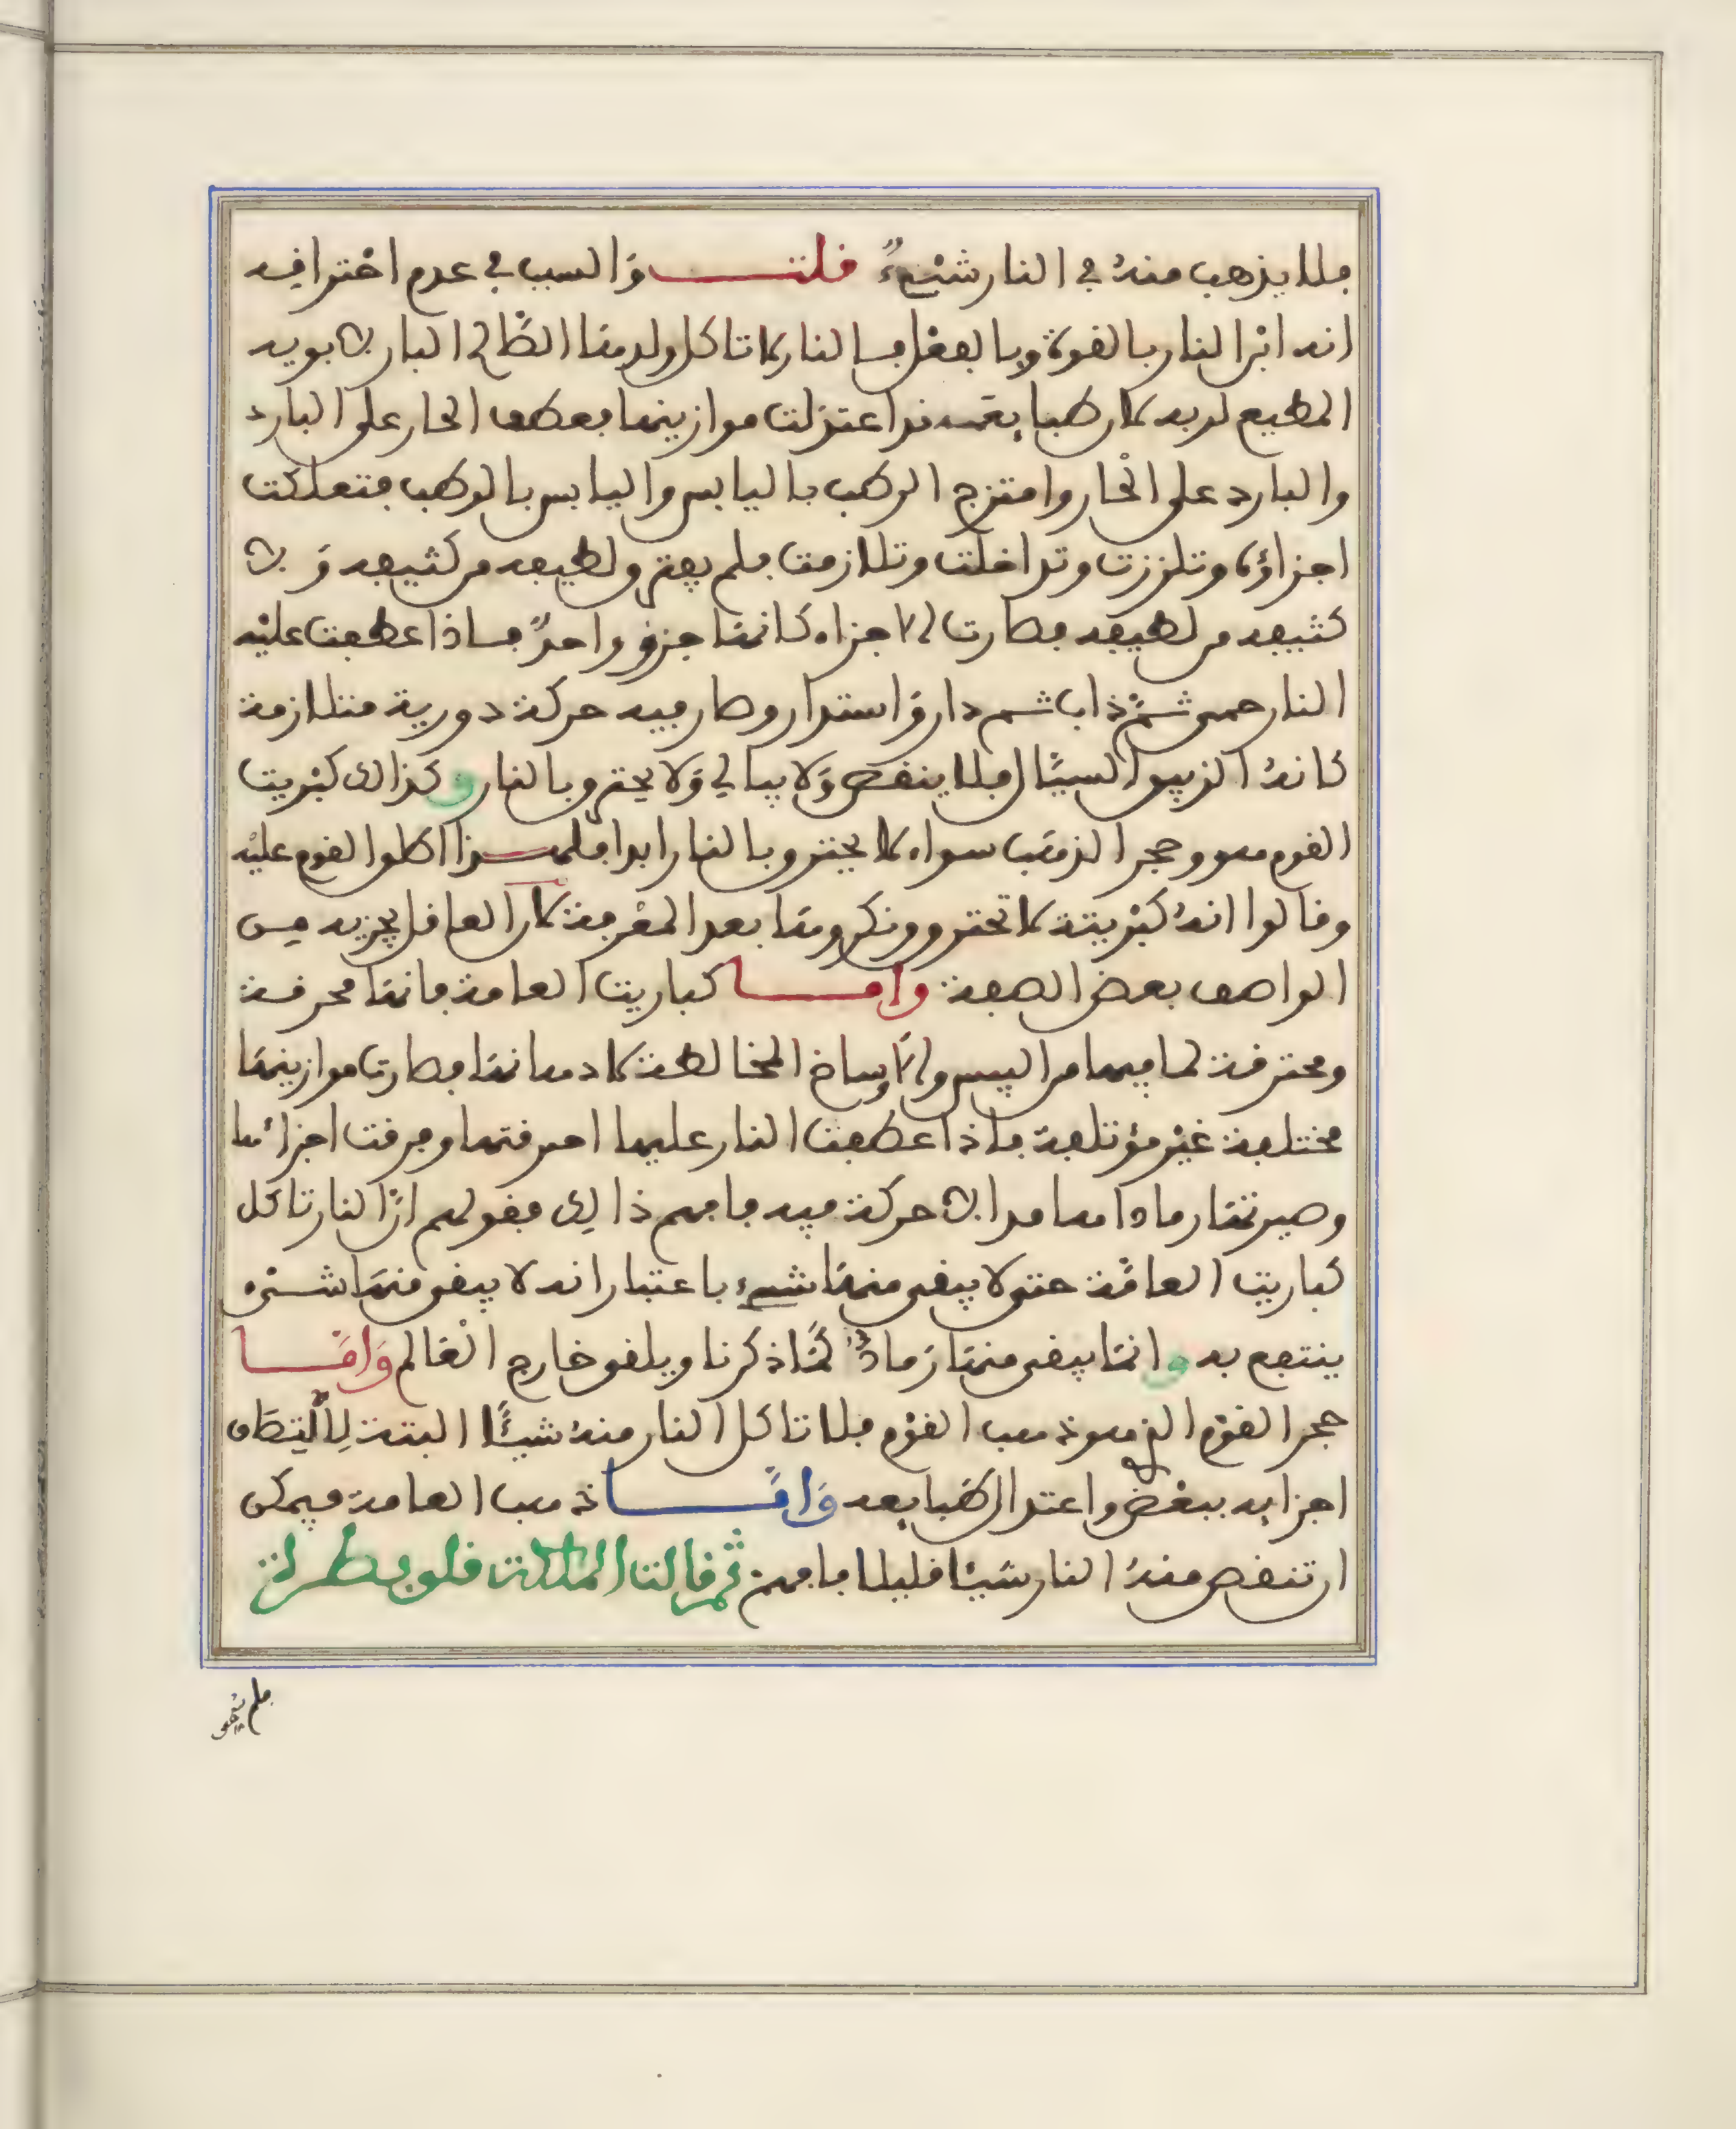 فلا يذهب منهُ في النار شيْءٌ قلت وَالسبب في عدم احْتراقِه
انه ابن النار بالقوة وبالفعْل فالنار لا تاكل ولدها الصَّالح البار بابويه
المطيع لربه لان طبايعه قد اعتدلت موازينها بعطف الحار على البارد
والبارد على الْحار وامتزج الرطب باليابس واليابس بالرطب فتعلكت
اجزاؤها وتلززت وتداخلت وتلازمت فلم يفترق لطيفه من كثيفه وَلا
كثيفه من لطيفه فصارت الاجزاء كانها جزؤ واحدٌ فاذا عطفت عليْه
النار حمى ثمَّ ذاب ثم دار وَاستدار وصار فيه حركة دورية متلازمة
كانهُ الزيبق السيَّال فلا ينقص وَلا يبالي وَلا يحترق بالنار وكذالك كبْريت
القوم هو وحجر الذهب سواء لا يحترق بالنار ابدا فلهذا اطلق القوم عليْه
وقالوا انهُ كبْريتة لا تحترق ونكروها بعد المعْرفة لان العاقل يجزيه من
الواصف بعض الصفة وامّا كباريت العامة فانها محرقة
ومحترقة لما فيها من اليبس والاوساخ المخالطة لادهانها فصارت موازينها
مختلفة غيْر مؤتلفة فاذا عطفت النار عليها احرقتها وفرقت اجزائها
وصيرتها رمادا هامدا لا حركة فيه فافهم ذالك فقولهم انَّ النار تاكل
كباريت العامَّة حتى لا يبقى منها شيء باعتبار انه لا يبقى منها شيْء
ينتفع به وانما يبقى منها رَمادٌ لمَّا ذكرنا ويلقى خارج الْعالم وَامَّا
حجر القوْم الذي هو ذهب القوْم فلا تاكل النار منهُ شيـًٔا البتة لِاتِّصَال
اجزايه ببعْض واعتدال طَبايعه وَامَّا ذهب العامة فيمكن
ان تنقص منهُ النار شيْـًٔا قليلا فافهم ثم قالت الملكة قلوبطرة
فلم